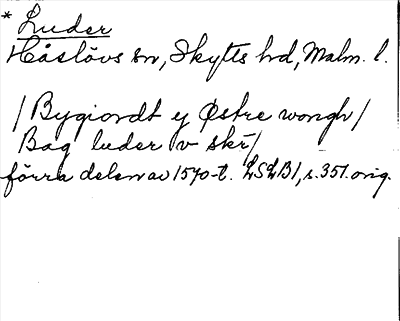 * Luder
Håslövs sn, Skytts hd, Malm. l.
/Bygiordt y Østre wongh/
Bag luder v skr/
förra delen av 1570-t. LSLB1, s. 351. orig.